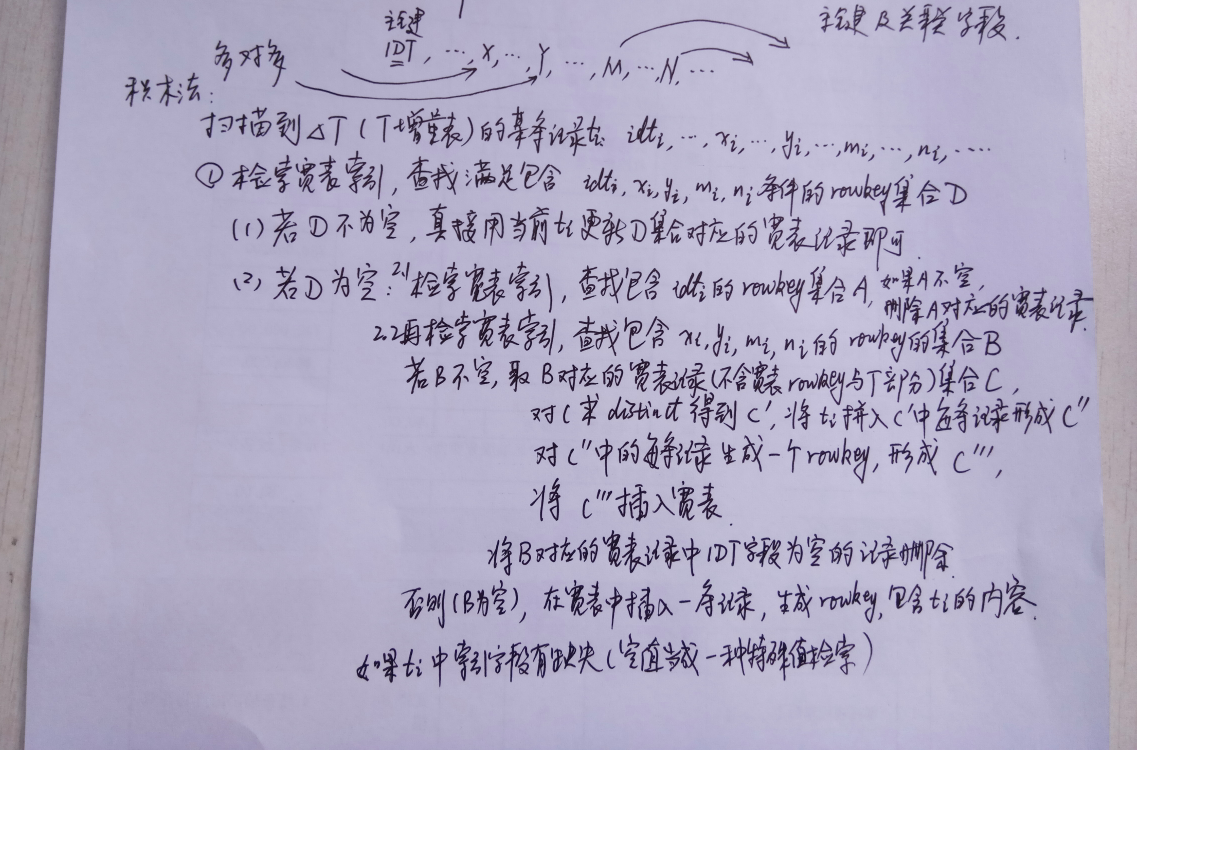 主键及关联字段.
主键
多对多 IDT, ..., X, ..., Y, ..., M, ..., N, ...
积木法:
扫描到△T(T增量表)的某条记录ti: idti, ..., xi, ..., yi, ..., mi, ..., ni, ....
① 检索宽表索引, 查找满足包含 idti, xi, yi, mi, ni 条件的rowkey集合D
(1) 若D不为空, 直接用当前ti更新D集合对应的宽表记录即可.
(2) 若D为空: 2.1 检索宽表索引, 查找包含 idti 的 rowkey集合A, 如果A不空,
删除A对应的宽表记录.
2.2 再检索宽表索引, 查找包含 xi, yi, mi, ni 的 rowkey的集合B
若B不空, 取B对应的宽表记录(不含宽表rowkey与T部分)集合C,
对C求distinct得到C', 将ti拼入C'中每条记录形成C''
对C''中的每条记录生成一个rowkey, 形成 C''',
将 C'''插入宽表.
将B对应的宽表记录中IDT字段为空的记录删除
否则(B为空), 在宽表中插入一条记录, 生成rowkey, 包含ti的内容.
如果ti中索引字段有缺失(空值当成一种特殊值检索)